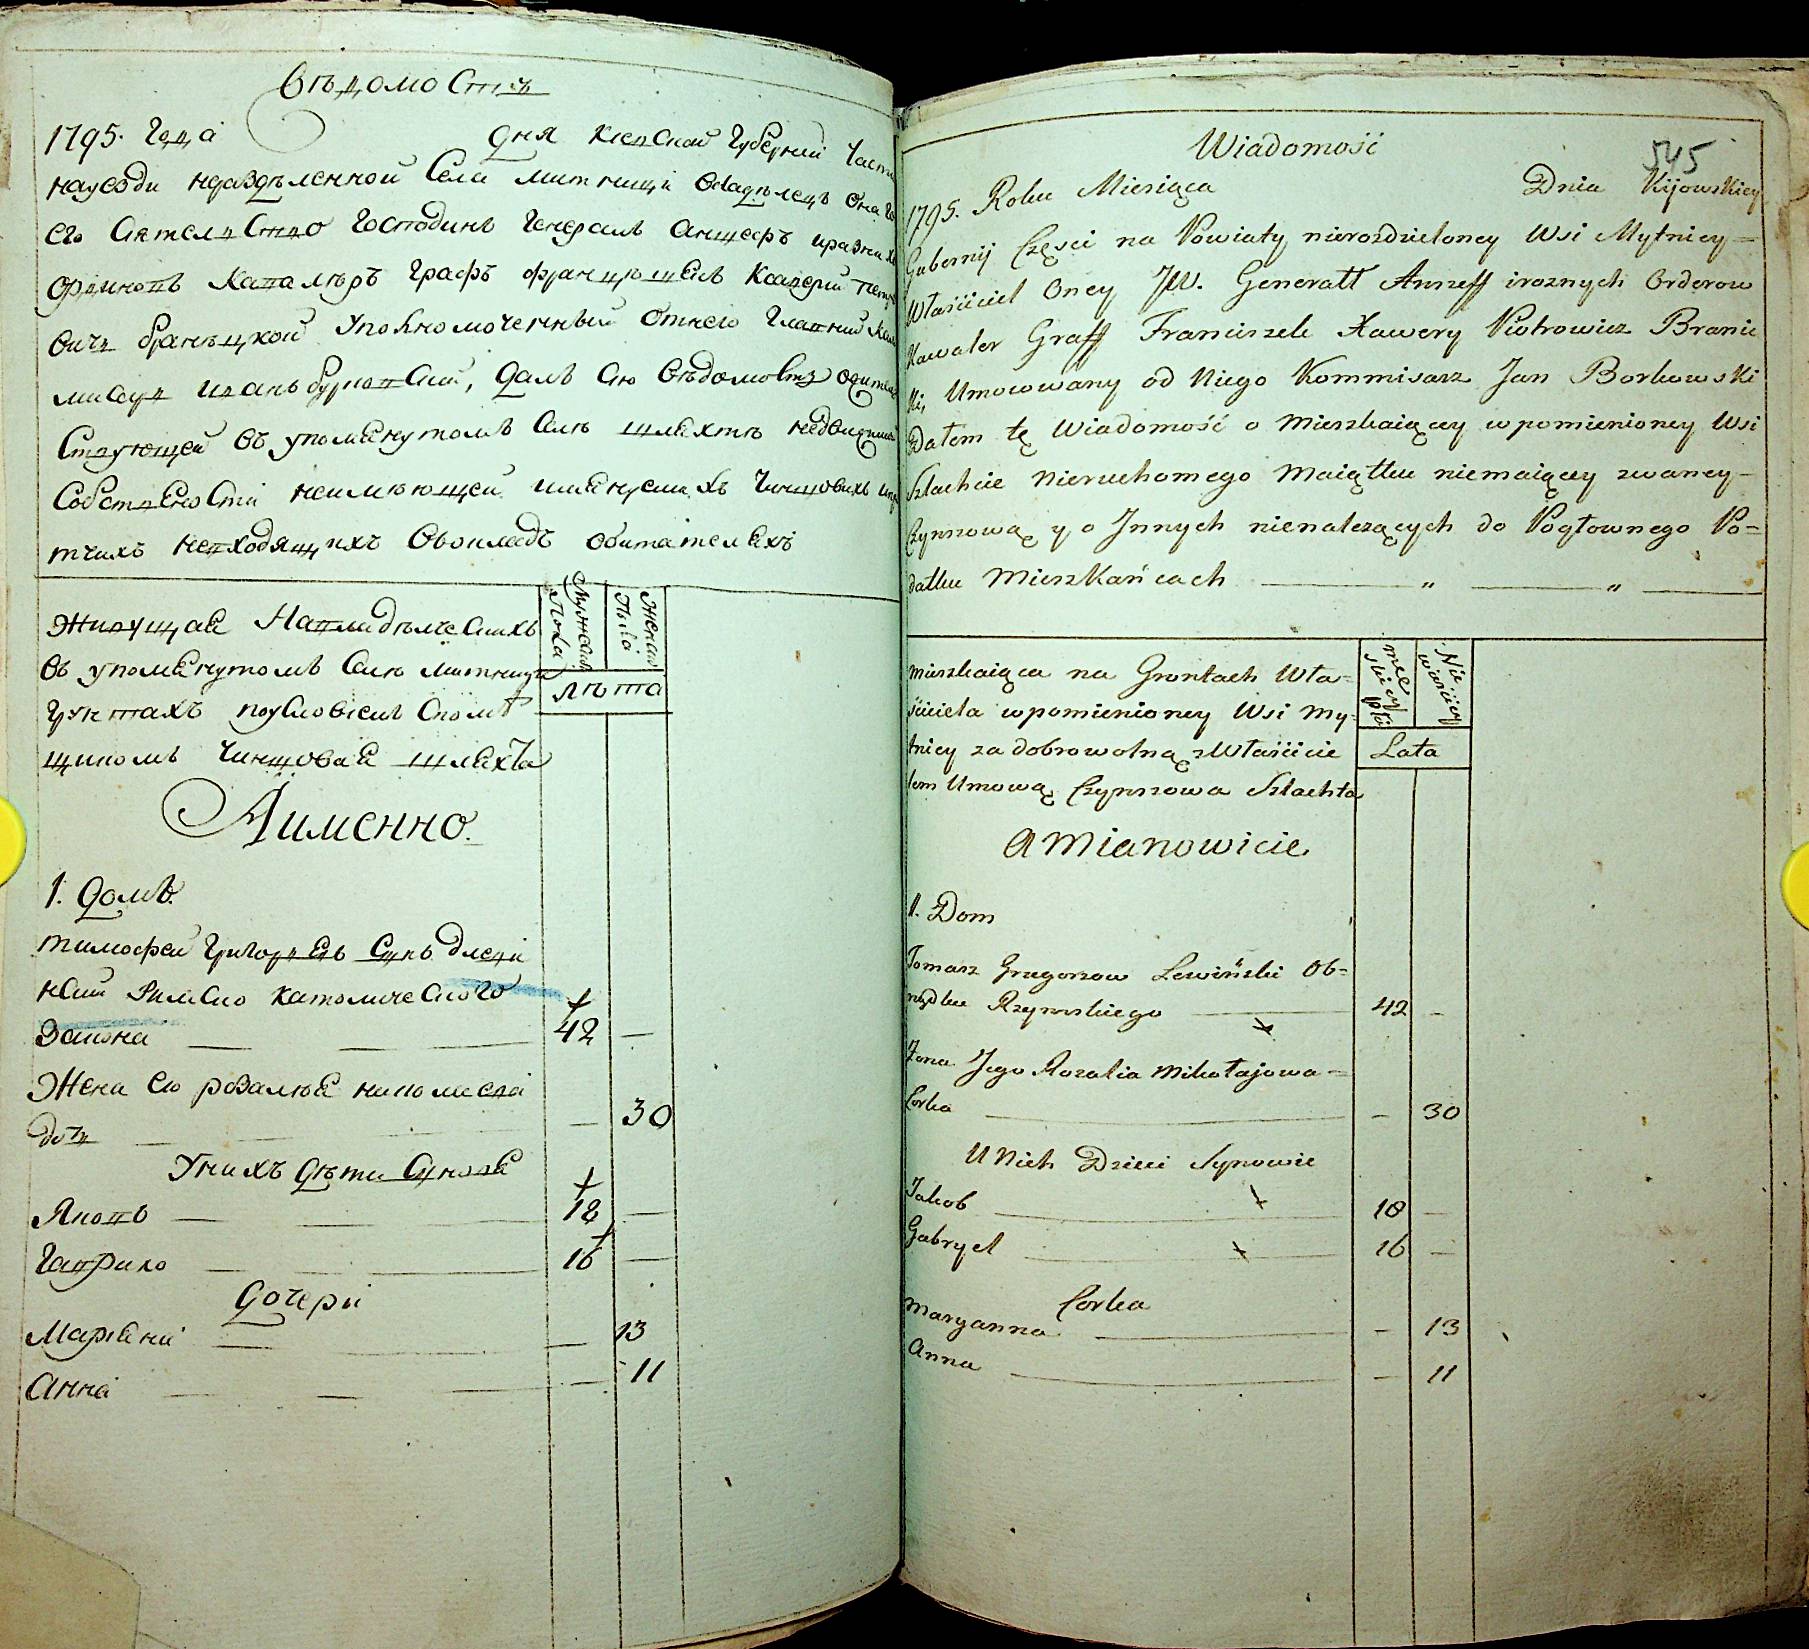 Вѣдомость
1795. Года дня Киевской Губернии Части
науезди нераздѣленной Села Митници Овладѣлецъ Онаго
его Сиятелство Господинъ Генералъ Аншефъ иразнихъ
Ординовъ Кавалѣръ Графъ Францѣшекъ Ксаверий Петро
вичь Бранѣцкой Уполномоченный Отнего Главний Ком
мисаръ Иванъ Бурковский, Далъ Сию Вѣдомость Ожитель
Ствующей Въ упомянутомъ Селѣ шляхтѣ недвижимой
Собствености неимѣющей имянуемихъ Чиншовихъ ипро
тчихъ невходящихъ Вокладъ Обитателяхъ
Живущая Навладѣлческихъ
въ упомянутомъ Селѣ Митници
грунтахъ поусловиемъ Спомѣ
щикомъ Чиншовая шляхта
Мужеска Пола
Женска Пола
Лѣта
Аименно.
1. Домъ.
тимофей Григорьевъ Синъ Левин
ский Римско католического
Закона 42 —
Жена Его розалия николаева
дочь — 30
Унихъ Дѣти Синовя
Яковъ 18 —
Гаврило 16 —
Дочери
Марияна — 13
Анна — 11
Wiadomość
545
1795. Roku Miesiąca Dnia Kijowskiey
Gubernij Części na Powiaty nierozdzieloney Wsi Mytnicy =
Właściciel Oney JW. Generałł Anszeff iroznych Orderow
Kawaler Graff Franciszek Xawery Piotrowicz Branic
ki, Umocowany od Niego Kommisarz Jan Borkowski
Dałem tę Wiadomość o Mieszkaiącey wpomienioney Wsi
Szlachcie Nieruchomego Maiątku niemaiącey zwaney –
Czynszową y o Innych nienalezących do Pogłownego Po=
datku Mieszkańcach — „ — „ —
Mieszkaiąca na Gruntach Wła=
ściciela wpomienioney Wsi My=
tnicy za dobrowolną z Właścicie
lem Umową Czynszowa Szlachta
Męe skiey płci
Nie wiasciey
Lata
A Mianowicie
1. Dom
Tomasz Grzegorzow Lewiński Ob=
rządku Rzymskiego 42 –
Zona Jego Rozalia Mikołajowa =
Corka – 30
U Nich Dzieci Synowie
Jakob 18 –
Gabryel 16 –
Corka
Maryanna – 13
Anna – 11